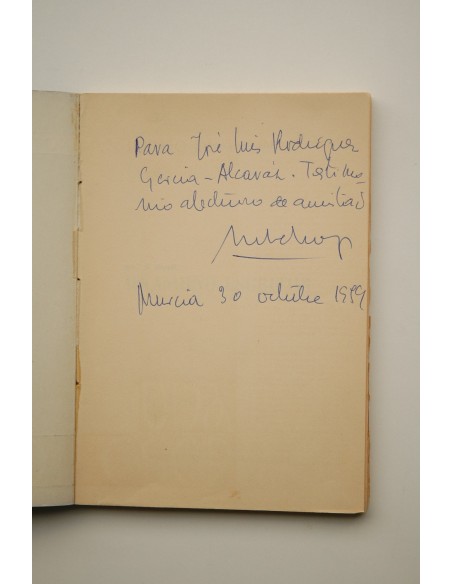 Para José Luis Rodríguez
García-Alcaraz. Testimo-
nio afectuoso de amistad
Murcia 30 octubre 1959